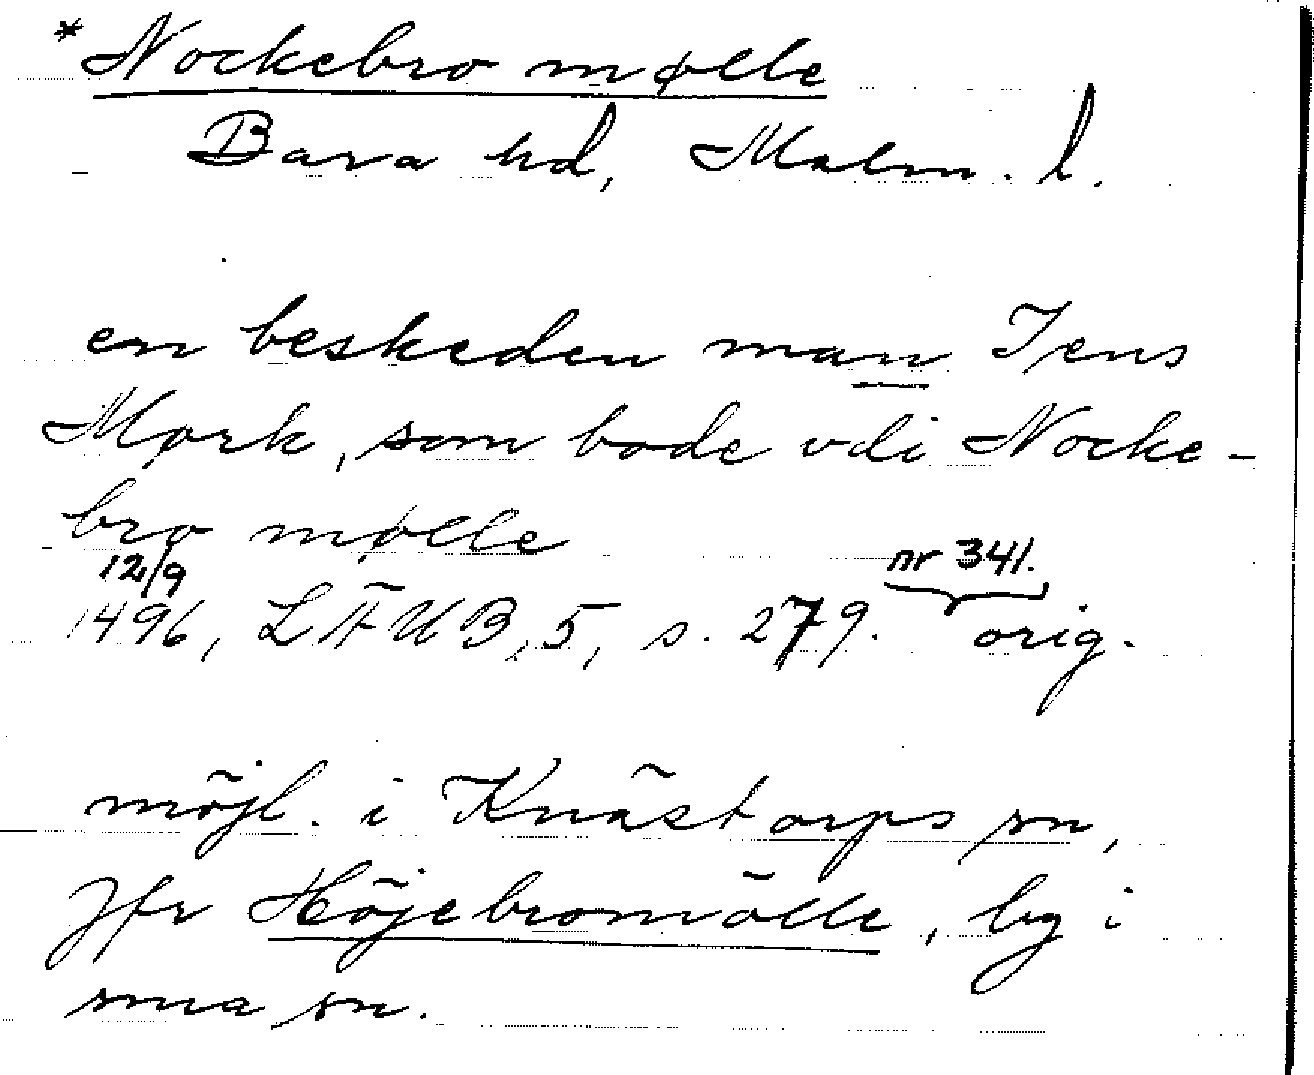 *Nockebro mølle
Bara hd, Malm. l.
en beskeden man Jens
Mørk, som bode vdi Nocke-
bro mølle
12/9 nr 341.
1496, LÄUB, 5, s. 279. orig.
möjl. i Knästorps sn,
Jfr Höjebromölle, by i
sma sn.